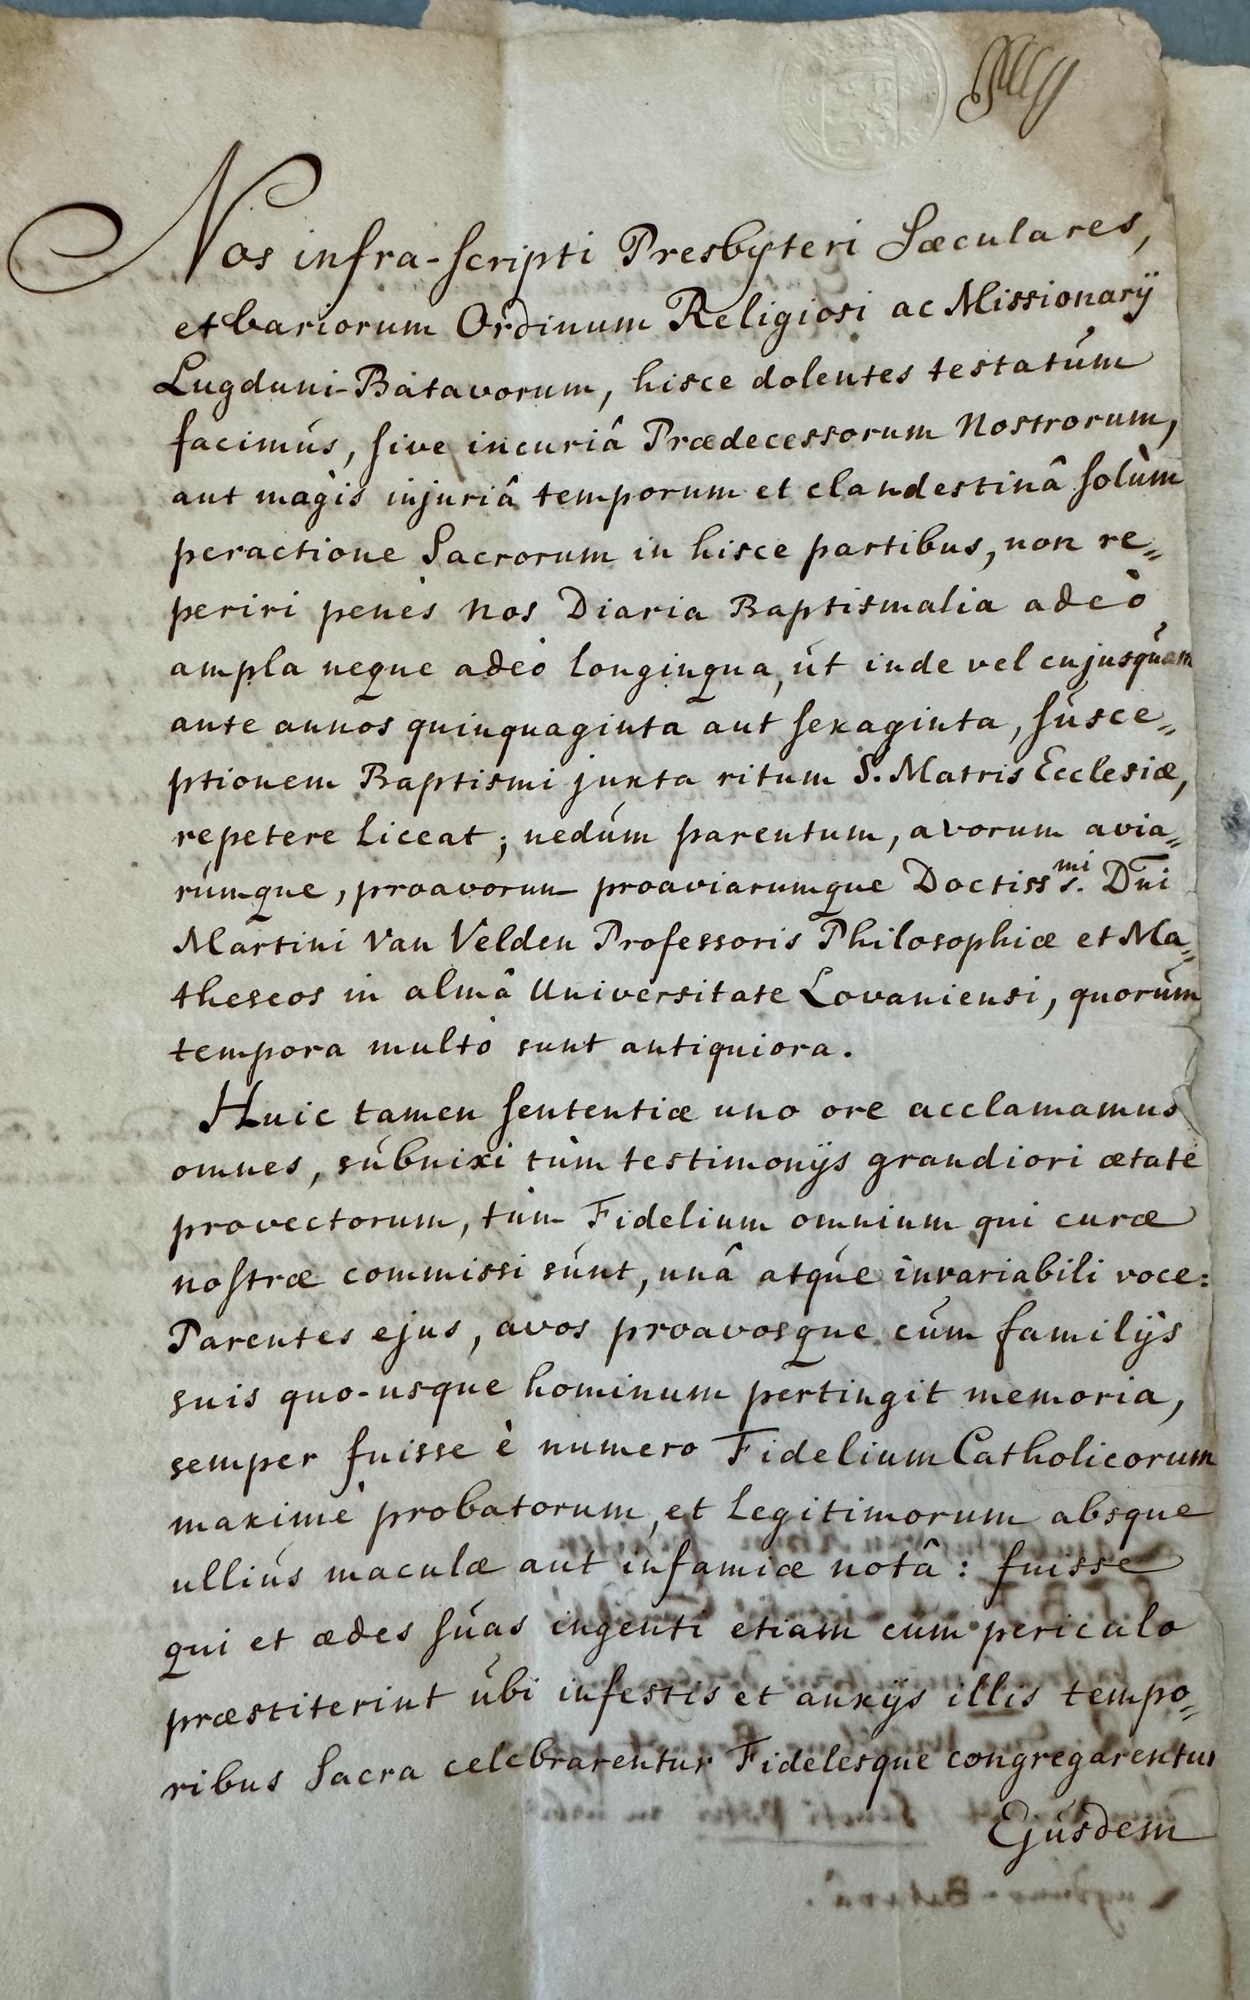 Nos infra-scripti Presbyteri Sæculares,
et variorum Ordinum Religiosi ac Missionarÿ
Lugduni-Batavorum, hisce dolentes testatúm
facimús, sive incuriâ Prædecessorum Nostrorum,
aut magis injuriâ temporum et clandestinâ solùm
peractione Sacrorum in hisce partibus, non re„
periri penès nos Diaria Baptismalia adeò
ampla neque adeò longinqua, út inde vel cujusquam
ante annos quinquaginta aut sexaginta, súsce„
ptionem Baptismi juxta ritum S. Matris Ecclesiæ,
repetere liceat; nedúm parentum, avorum avia„
rúmque, proavorum proaviarumque Doctissmi. Dni
Martini Van Velden Professoris Philosophiæ et Ma„
theseos in almâ Universitate Lovaniensi, quorúm
tempora multò sunt antiquiora.
Huic tamen sententiæ uno ore acclamamus
omnes, súbnixi tùm testimonÿs grandiori ætate
provectorum, tùm Fidelium omnium qui curæ
nostræ commissi súnt, unâ atqúe invariabili voce:
Parentes ejus, avos proavosque cúm familÿs
suis quo-usque hominum pertingit memoria,
semper fuisse è numero Fidelium Catholicorum
maximè probatorum, et legitimorum absque
ulliús maculæ aut infamiæ notâ: fuisse
qui et ædes súas ingenti etiam cum periculo
præstiterint úbi infestis et anxÿs illis tempo„
ribus Sacra celebrarentur Fidelesque congregarentur
Ejúsdem